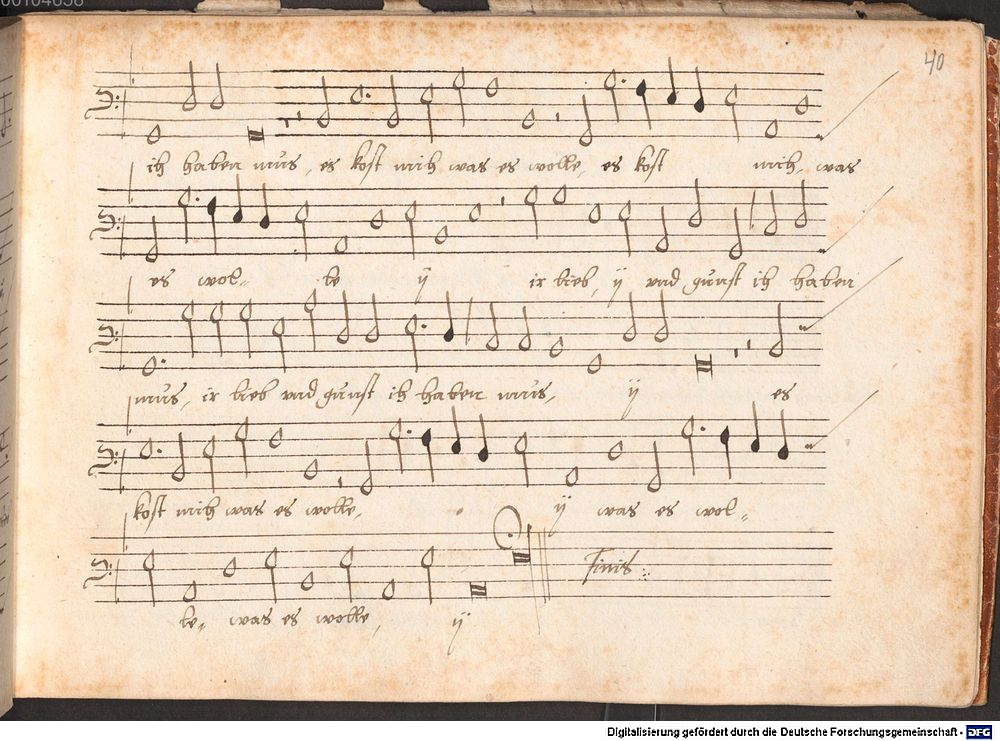 40
ich haben mus, es kost mich was es wolle, es kost mich, was
es wol- le ÿ ir lieb, ÿ vnd gunst ich haben
mus, ir lieb vnd gunst ich haben mus, ÿ es
kost mich was es wolle, ÿ was es wol-
le, was es wolle, ÿ
Finis
Digitalisierung gefördert durch die Deutsche Forschungsgemeinschaft - DFG